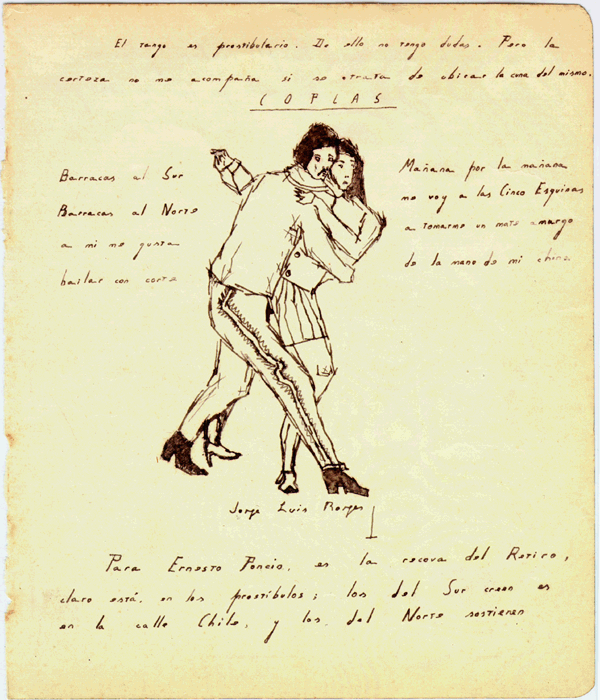 El tango es prostibulario. De ello no tengo dudas. Pero la
certeza no me acompaña si se trata de ubicar la cuna del mismo.
COPLAS
Barracas al Sur
Barracas al Norte
a mi me gusta
bailar con corte
Mañana por la mañana
me voy a las Cinco Esquinas
a tomarme un mate amargo
de la mano de mi china
Jorge Luis Borges
Para Ernesto Poncio, es la recova del Retiro,
claro está, en los prostíbulos; los del Sur creen es
en la calle Chile, y los del Norte sostienen